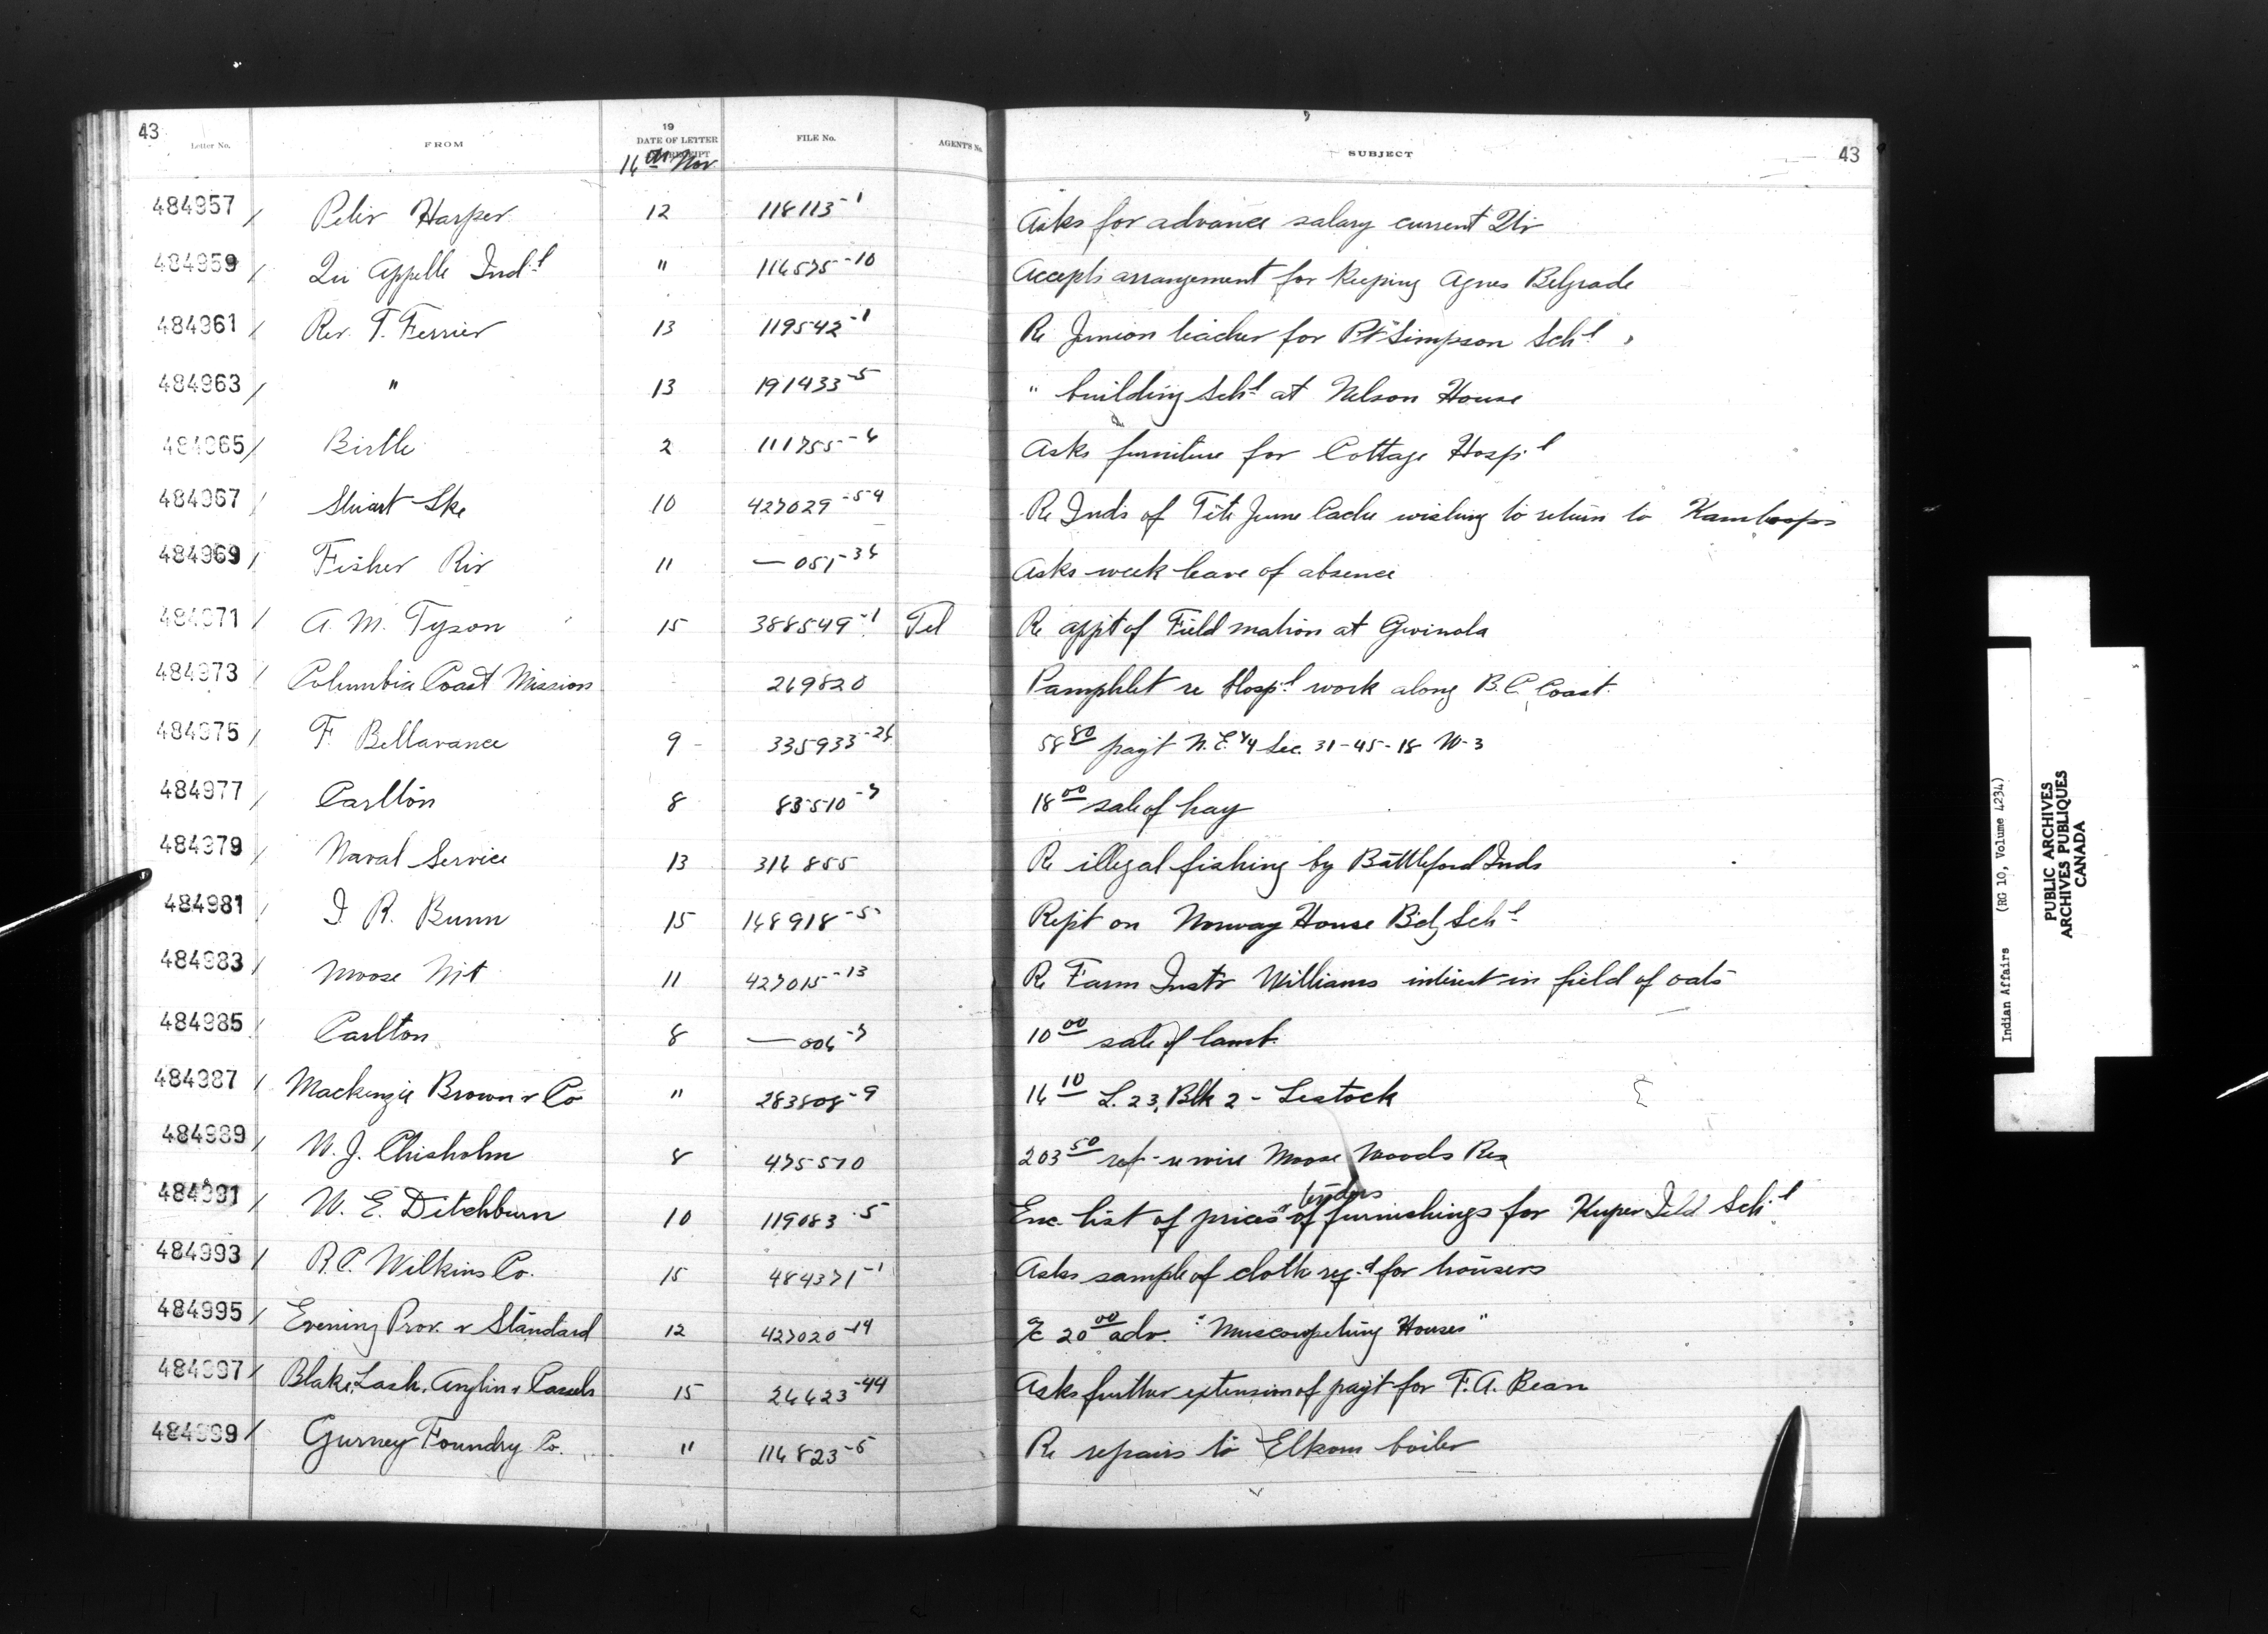 43
Letter No. FROM 19 DATE OF LETTER RECEIPT FILE No. AGENT'S No. SUBJECT 43
16th Nov.
484957 / Peter Harper 12 118113-1 Asks for advance salary current Qtr
484959 / Qu Appelle Indl " 116575-10 Accepts arrangement for keeping Agnes Belgrade
484961 / Rev. T. Ferrier 13 119542-1 Re Junior teacher for Pt Simpson Schl
484963 / " 13 191433-5 " building Schl at Nelson House
484965 / Birtle 2 111755-6 Asks furniture for Cottage Hospl
484967 / Stuart Lke 10 427029-54 Re Inds of Tete Jeune Cache wishing to return to Kamloops
484969 / Fisher Riv 11 — 051-36 Asks week leave of absence
484971 / A. M. Tyson 15 388549-1 Tel Re appt of Field matron at Gwinola
484973 / Columbia Coast Mission 269820 Pamphlet re Hospl work along B.C. Coast.
484975 / F. Bellavance 9 335933-26 58 80 payt N.E. 1/4 Sec. 31-45-18 W-3
484977 / Carlton 8 83510-7 18 00 sale of hay
484979 / Naval Service 13 316855 Re illegal fishing by Battleford Inds
484981 / J R. Bunn 15 148918-5 Rept on Norway House Bdg Schl
484983 / Moose Mt 11 427015-13 Re Farm Instr Williams interest in field of oats
484985 / Carlton 8 — 006-7 10 00 sale of lamb
484987 / Mackenzie Brown & Co " 283808-9 16 10 L. 23, Blk 2 - Lestock
484989 / W. J. Chisholm 8 475570 203 50 ref - re wire Moose Woods Res
tenders
484991 / W. E. Ditchburn 10 119083-5 Enc. list of prices " of furnishings for Kuper Isld Schl
484993 / R.C. Wilkins Co. 15 484371-1 Asks sample of cloth reqd for trousers
484995 / Evening Prov. & Standard 12 427020-14 a/c 20 00 adv. "Muscowpetung Houses"
484997 / Blake, Lash, Anglin & Cassels 15 26623-44 Asks further extension of payt for F. A. Bean
484999 / Gurney Foundry Co. " 116823-5 Re repairs to Elkhorn boiler
Indian Affairs (RG 10, Volume 4234)
PUBLIC ARCHIVES
ARCHIVES PUBLIQUES
CANADA